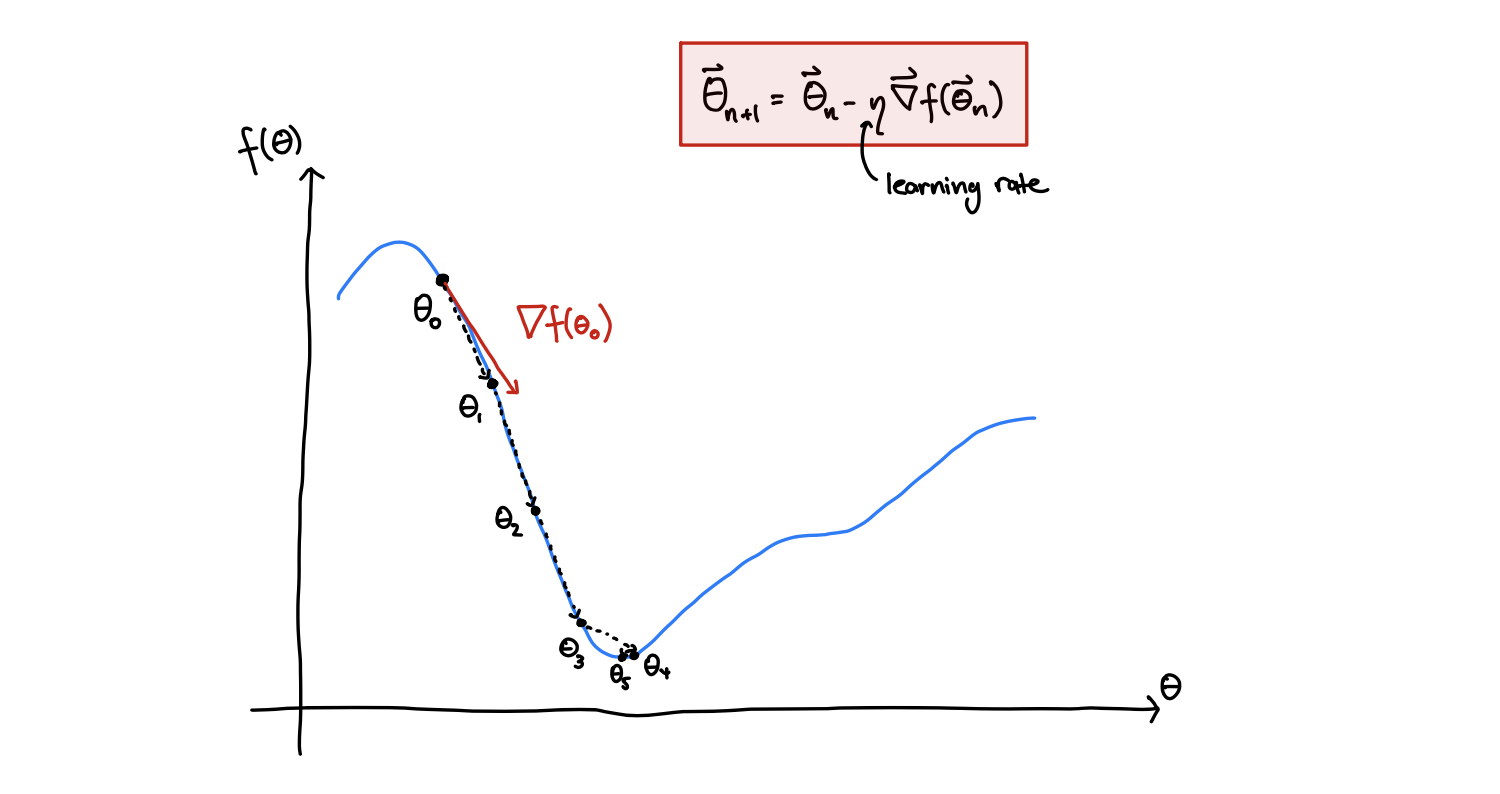 θ⃗ₙ₊₁ = θ⃗ₙ - η ∇⃗f(θ⃗ₙ)
learning rate
f(θ)
θ₀
∇f(θ₀)
θ₁
θ₂
θ₃
θ₅ θ₄
θ